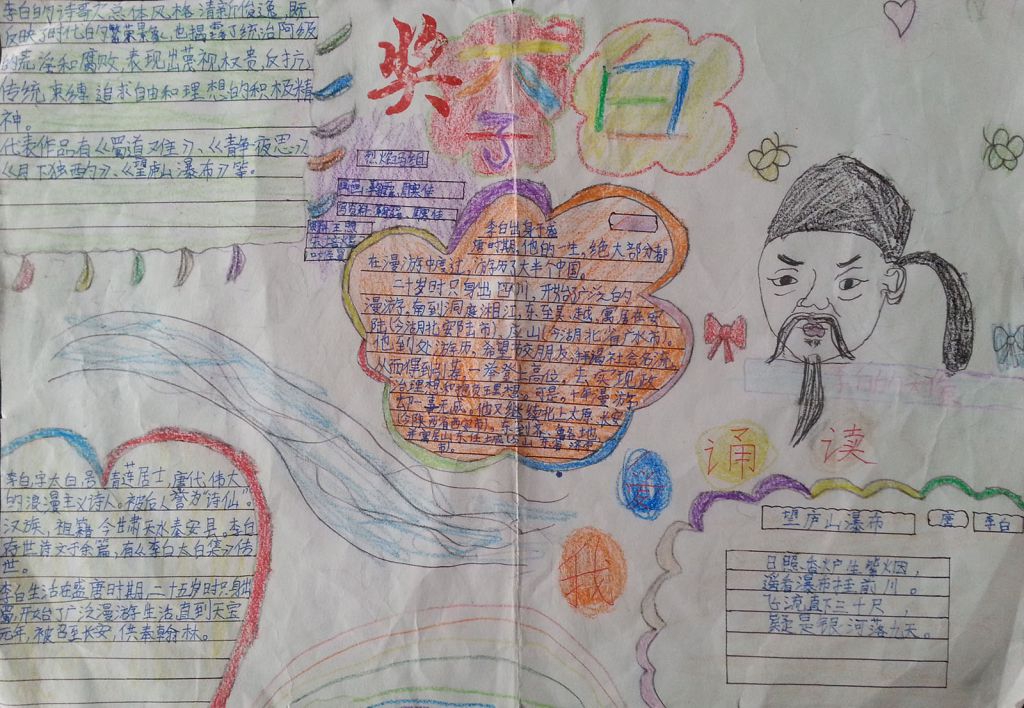 李白的诗歌总体风格清新俊逸,既
反映了时代的繁荣景象,也揭露了统治阶级
的荒淫和腐败,表现出蔑视权贵,反抗
传统束缚,追求自由和理想的积极精
神。
代表作品有《蜀道难》、《静夜思》
《月下独酌》、《望庐山瀑布》等。
奖
太白
子
李白出身于盛
唐时期,他的一生,绝大部分都
在漫游中度过,游历了大半个中国。
二十岁时只身出四川,开始了广泛的
漫游,南到洞庭湘江,东至吴、越,寓居在安
陆(今湖北安陆市)、应山(今湖北省广水市)。
他到处游历,希望结交朋友,
从而得到引荐,一举登上高位,去实现政
治理想和
却一事无成。他又继续北上太原、长安
我
诵读
李白,字太白,号青莲居士,唐代伟大
的浪漫主义诗人。被后人誉为“诗仙”
汉族,祖籍今甘肃天水秦安县。李白
存世诗文千余篇,有《李白太白集》传
世。
李白生活在盛唐时期,二十五岁时只身出
蜀,开始了广泛漫游生活,直到天宝
元年,被召至长安,供奉翰林。
望庐山瀑布 唐 李白
日照香炉生紫烟,
遥看瀑布挂前川。
飞流直下三千尺,
疑是银河落九天。